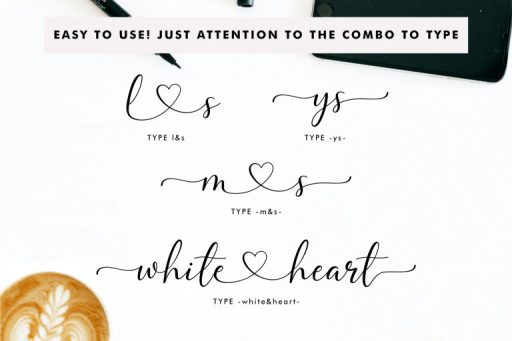 EASY TO USE! JUST ATTENTION TO THE COMBO TO TYPE
l♡s ys
TYPE l&s TYPE -ys-
m♡s
TYPE -m&s-
white♡heart
TYPE -white&heart-